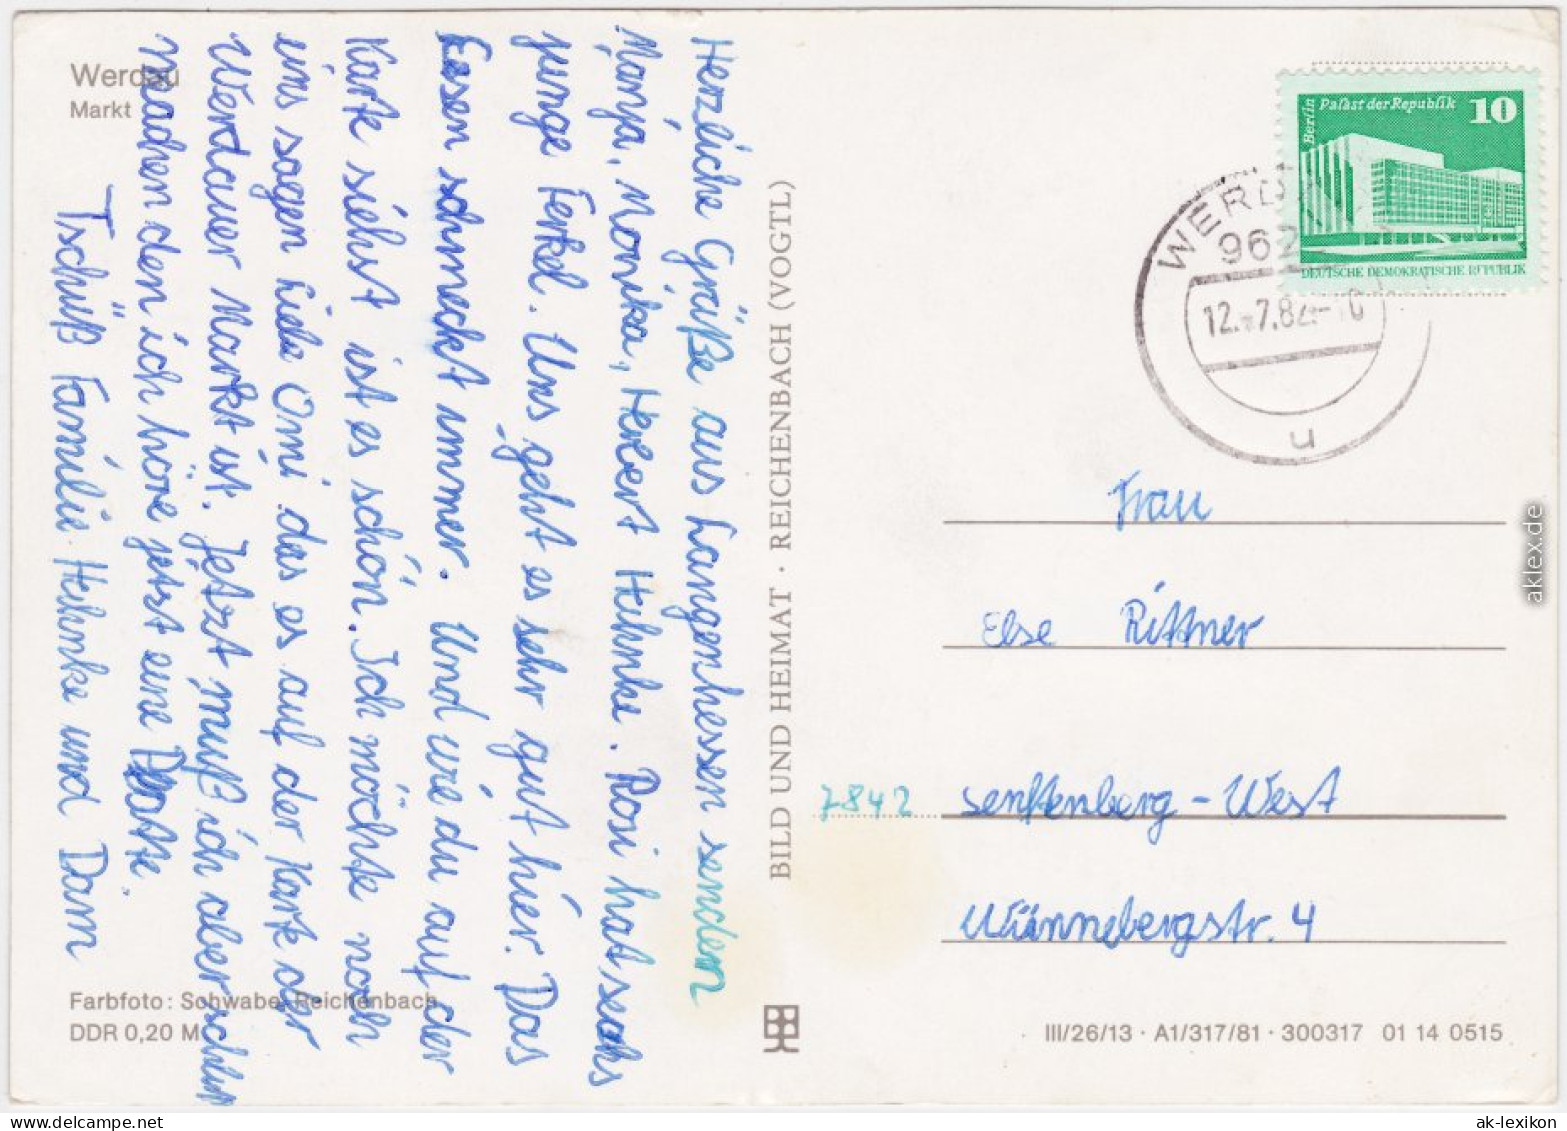 Werdau
Markt
Herzliche Grüße aus Langenhessen senden
Manja, Monika, Herbert Hehnke. Rosi hat sechs
junge Ferkel. Uns geht es sehr gut hier. Das
Essen schmeckt immer. Und wie du auf der
Karte siehst ist es schön. Ich möchte noch
eins sagen Liebe Omi das es auf der Karte der
Werdauer Markt ist. Jetzt muß ich aber schluß
machen den ich höre jetzt eine Platte.
Tschüß Familie Hehnke und Dam
Farbfoto: Schwabe, Reichenbach
DDR 0,20 M
BILD UND HEIMAT · REICHENBACH (VOGTL)
Berlin
Palast der Republik 10
DEUTSCHE DEMOKRATISCHE REPUBLIK
WERDAU
962
12.-7.82-10
u
Frau
Else Rittner
7842 Senftenberg-West
Wünnebergstr. 4
III/26/13 · A1/317/81 · 300317 01 14 0515
aklex.de
ak-lexikon